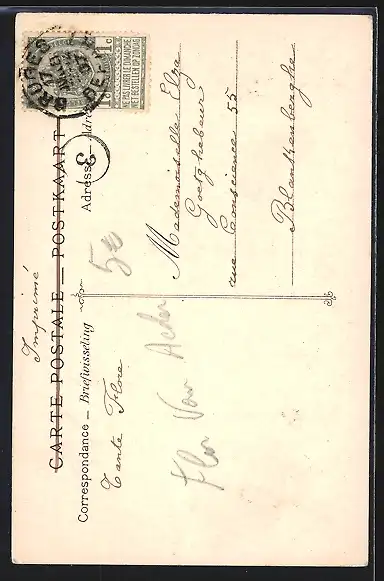 Imprimé
CARTE POSTALE — POSTKAART
Correspondance — Briefwisseling
Adresse
3
1c
NE PAS LIVRER LE DIMANCHE
NIET BESTELLEN OP ZONDAG
BRUGES
Tante Flore
5
Mademoiselle Elza
Goetghebeur
rue Conscience 55
Blankenberghe
Flor Van Acker